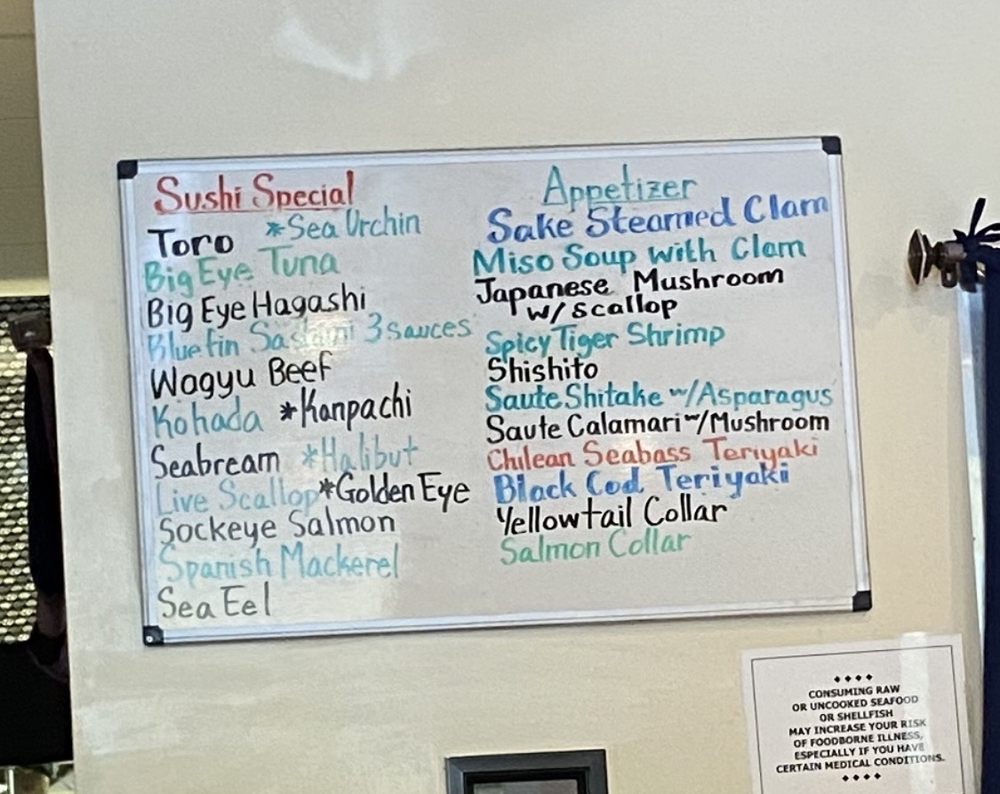 Sushi Special
Toro *Sea Urchin
Big Eye Tuna
Big Eye Hagashi
Bluefin Sashimi 3 sauces
Wagyu Beef
Kohada *Kanpachi
Seabream *Halibut
Live Scallop *Golden Eye
Sockeye Salmon
Spanish Mackerel
Sea Eel
Appetizer
Sake Steamed Clam
Miso Soup with Clam
Japanese Mushroom
w/ Scallop
Spicy Tiger Shrimp
Shishito
Saute Shitake w/Asparagus
Saute Calamari w/Mushroom
Chilean Seabass Teriyaki
Black Cod Teriyaki
Yellowtail Collar
Salmon Collar
CONSUMING RAW
OR UNCOOKED SEAFOOD
OR SHELLFISH
MAY INCREASE YOUR RISK
OF FOODBORNE ILLNESS,
ESPECIALLY IF YOU HAVE
CERTAIN MEDICAL CONDITIONS.